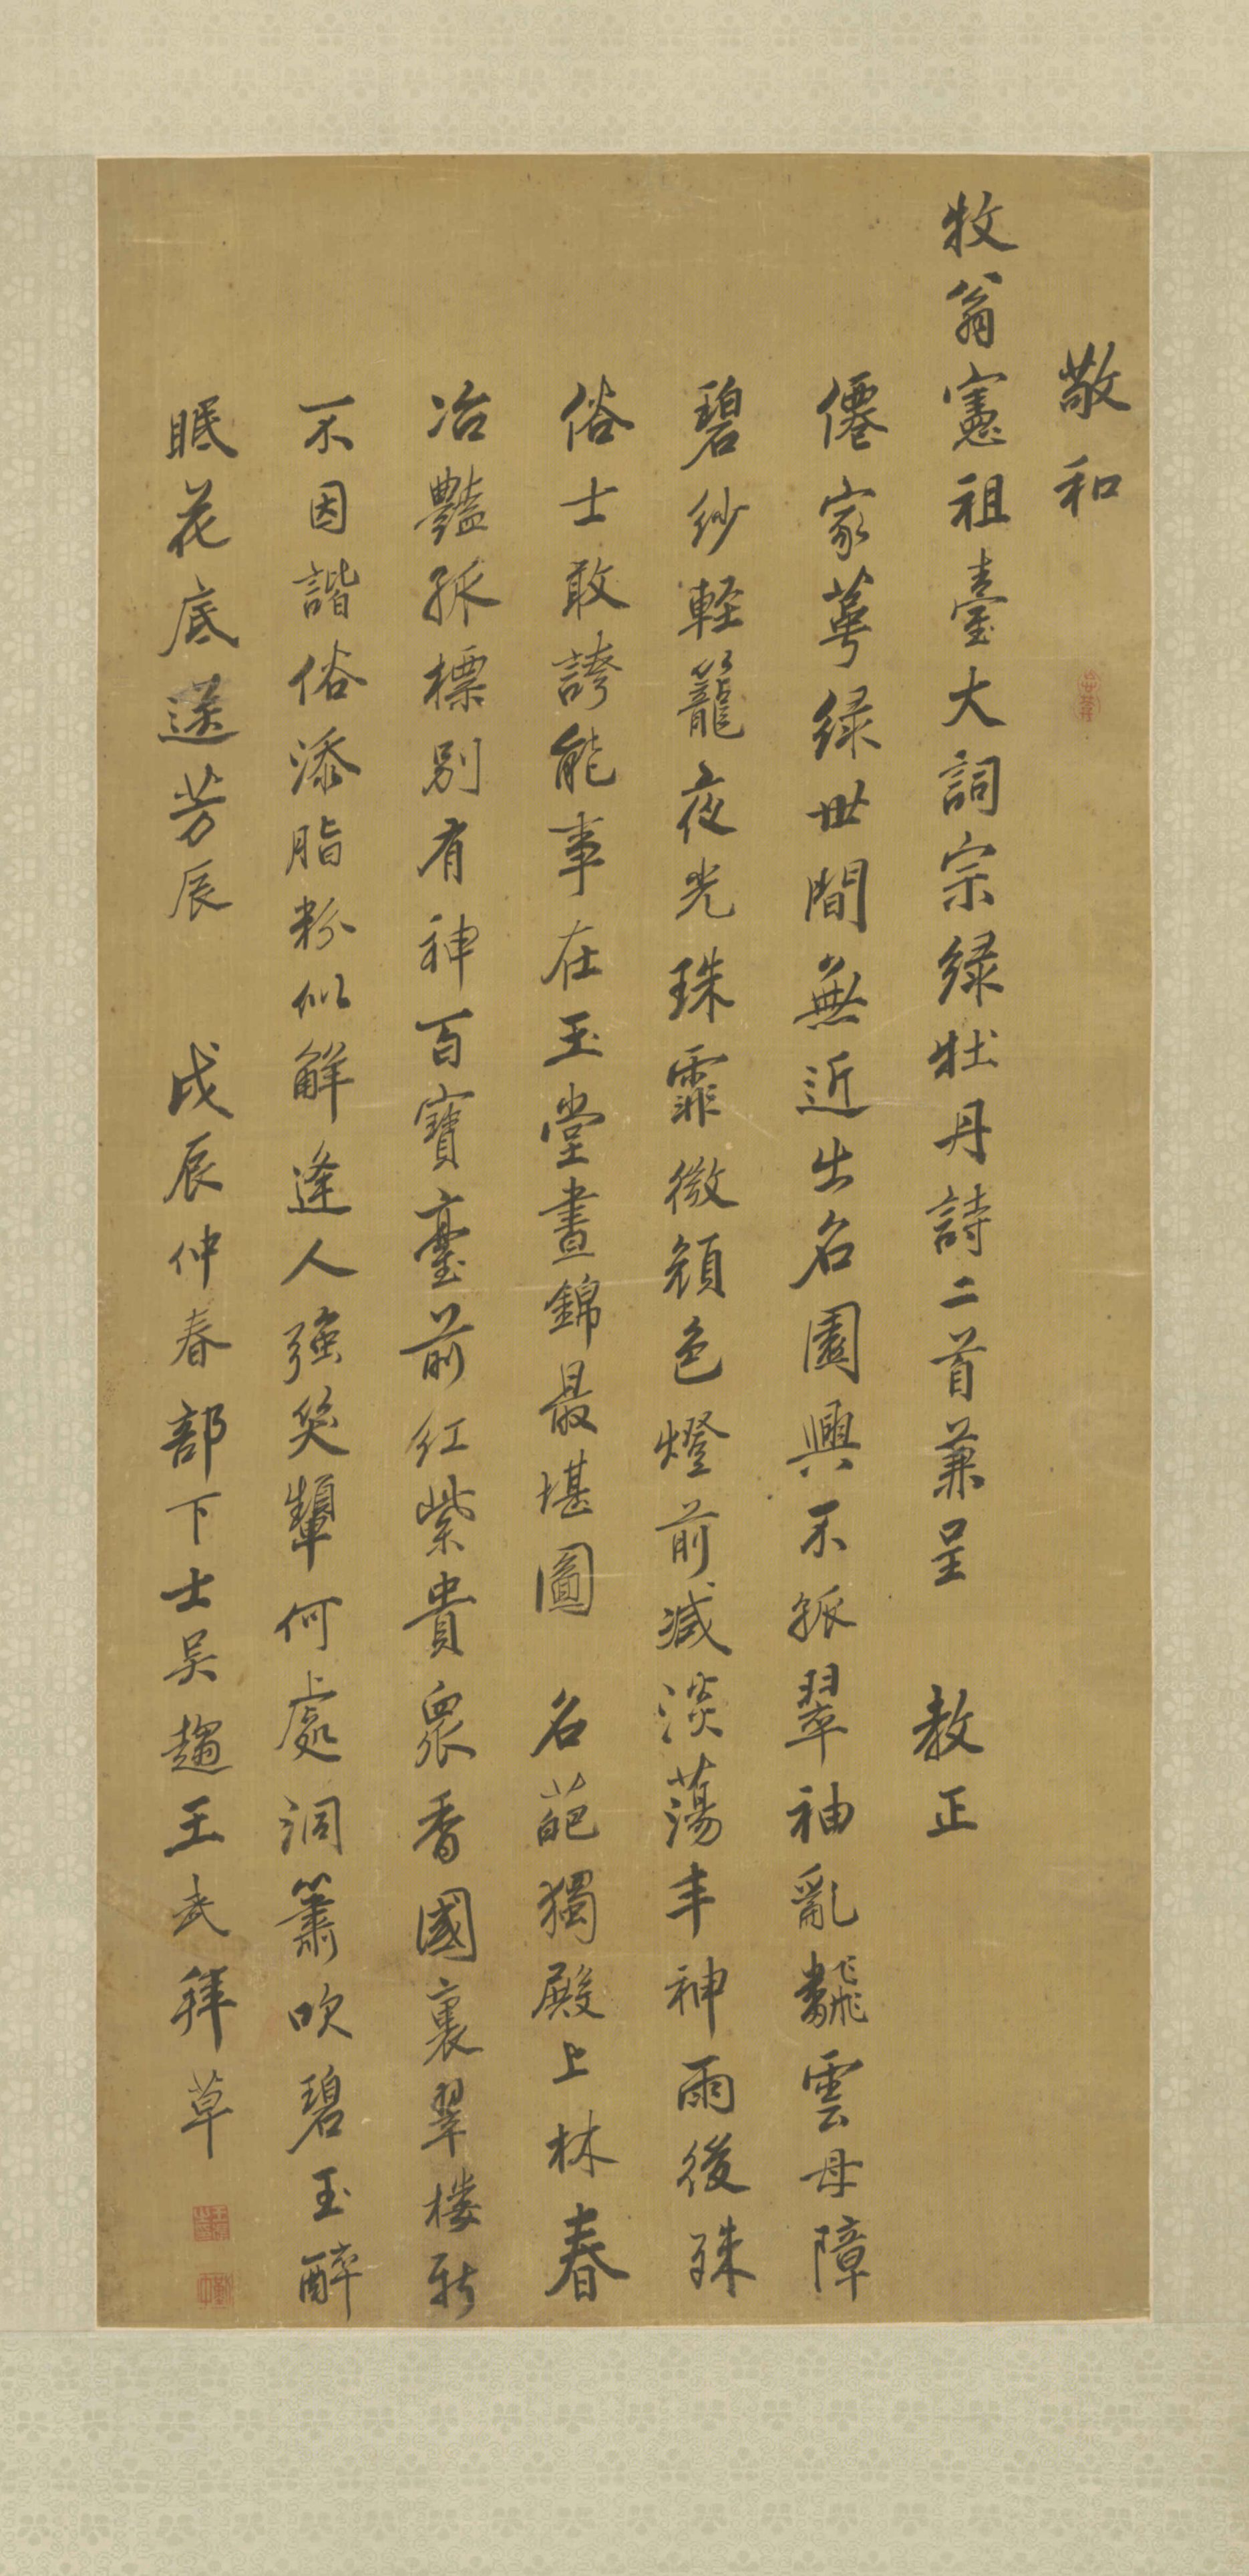 敬和
牧翁憲祖臺大詞宗綠牡丹詩二首兼呈 教正
僊家萼綠世間無近出名園興不孤翠袖亂飜雲母障
碧紗輕籠夜光珠霏微顏色燈前減淡蕩丰神雨後殊
俗士敢誇能事在玉堂晝錦最堪圖 名葩獨殿上林春
冶豔孤標別有神百寶臺前紅紫貴衆香國裏翠樓新
不因諧俗添脂粉似解逢人強笑顰何處洞簫吹碧玉醉
眠花底送芳辰 戊辰仲春部下士吳趨王武拜草